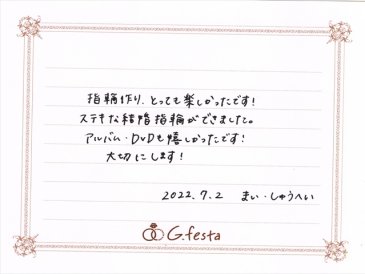 指輪作り、とっても楽しかったです!
ステキな結婚指輪ができました。
アルバム・DVDも嬉しかったです!
大切にします!
2022.7.2 まい・しゅうへい
G.festa